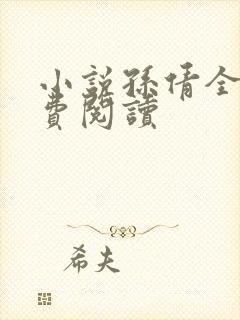 小説孫倩全
費閱讀
希夫